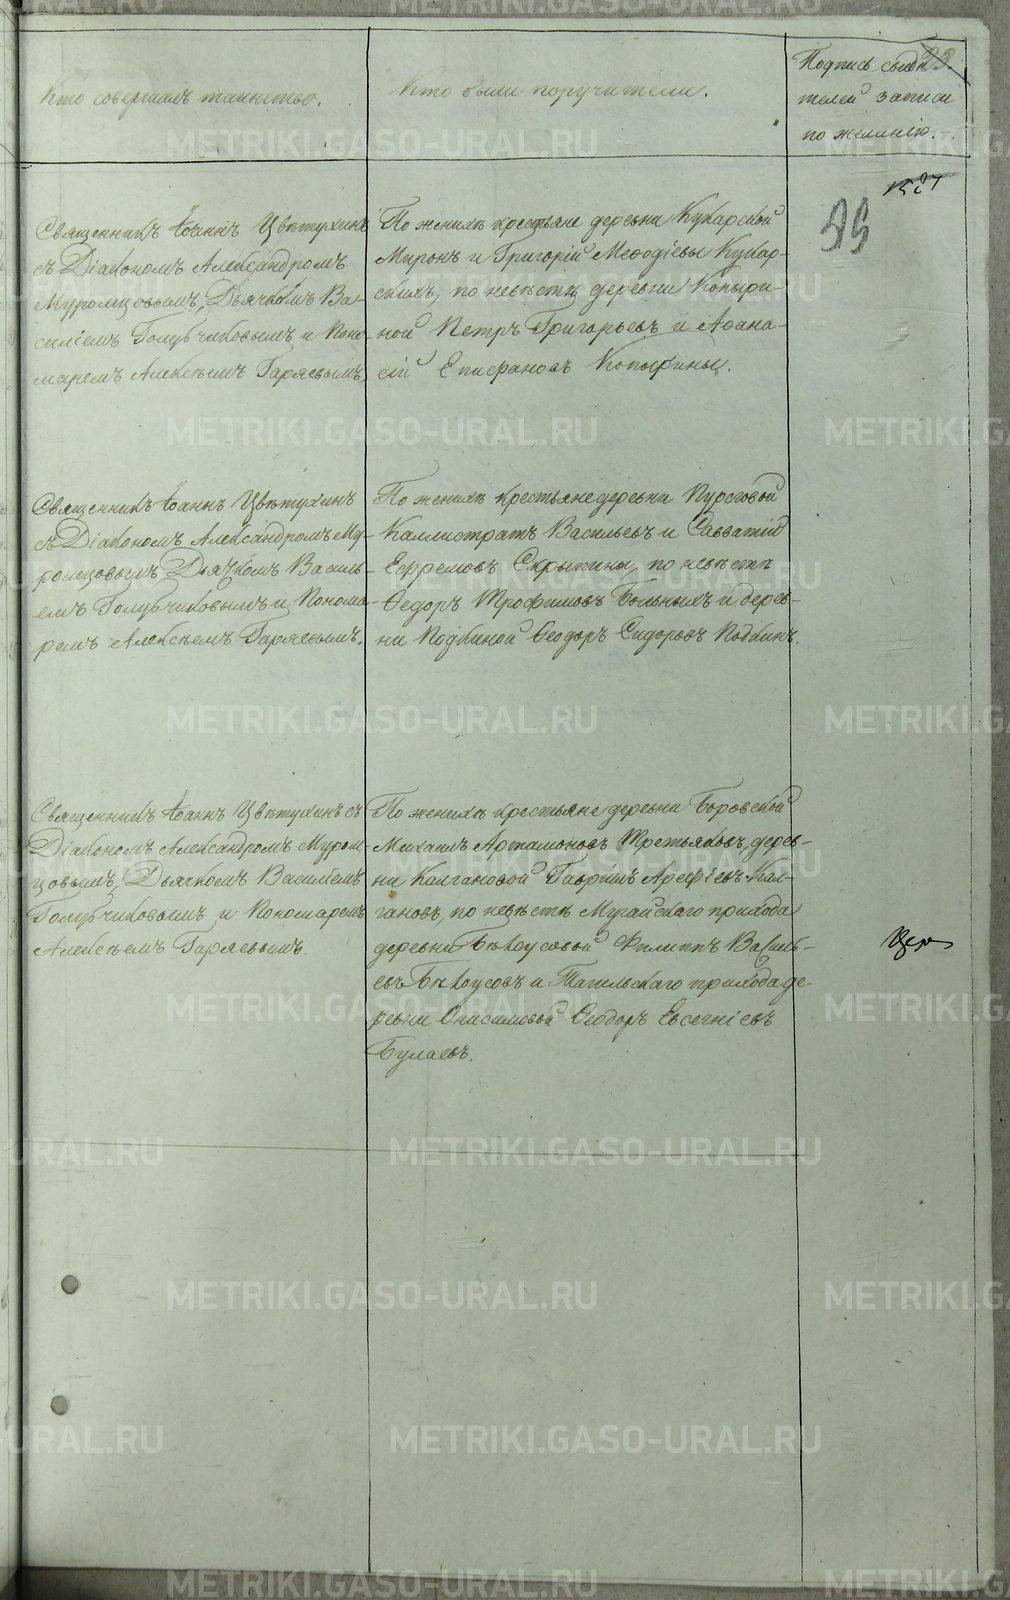 Кто совершалъ таинство.
Кто были поручители.
Подпись свидѣ
телей записи
по желанію.
Священникъ Іоаннъ Цвѣтухинъ
съ Діакономъ Александромъ
Муромцовымъ, Дьячкомъ Ва-
силіемъ Голубчиковымъ и Поно-
маремъ Алексѣемъ Гаряевымъ.
По женихѣ крестьяне деревни Кукарской
Миронъ и Григорій Меѳодіевы Кукар-
скихъ, по невѣстѣ деревни Копыри-
ной Петръ Григорьевъ и Аѳана-
сій Епифановъ Копырины.
99
Священникъ Іоаннъ Цвѣтухинъ
съ Діакономъ Александромъ Му-
ромцовымъ, Дьячкомъ Василь-
емъ Голубчиковымъ и Понома-
ремъ Алексѣемъ Гаряевымъ.
По женихѣ крестьяне деревни
Каллистратъ Васильевъ и Савватій
Ефремовъ Скрыпины, по невѣстѣ
Ѳедоръ Трофимовъ Больныхъ и дерев-
ни Подкиной Ѳеодоръ Сидоровъ Подкинъ.
Священникъ Іоаннъ Цвѣтухинъ съ
Діакономъ Александромъ Муром-
цовымъ, Дьячкомъ Василіемъ
Голубчиковымъ и Пономаремъ
Алексѣемъ Гаряевымъ.
По женихѣ крестьяне деревни Боровской
Михаилъ Артамоновъ Третьяковъ, дерев-
ни Калгановой Гавріилъ Арефіевъ Кал-
гановъ, по невѣстѣ Мугайскаго прихода
деревни Бѣлоусовой Филиппъ Василь-
евъ Бѣлоусовъ и Тагильскаго прихода де-
ревни Онисимовой Ѳеодоръ Евсегніевъ
Булаевъ.
METRIKI.GASO-URAL.RU